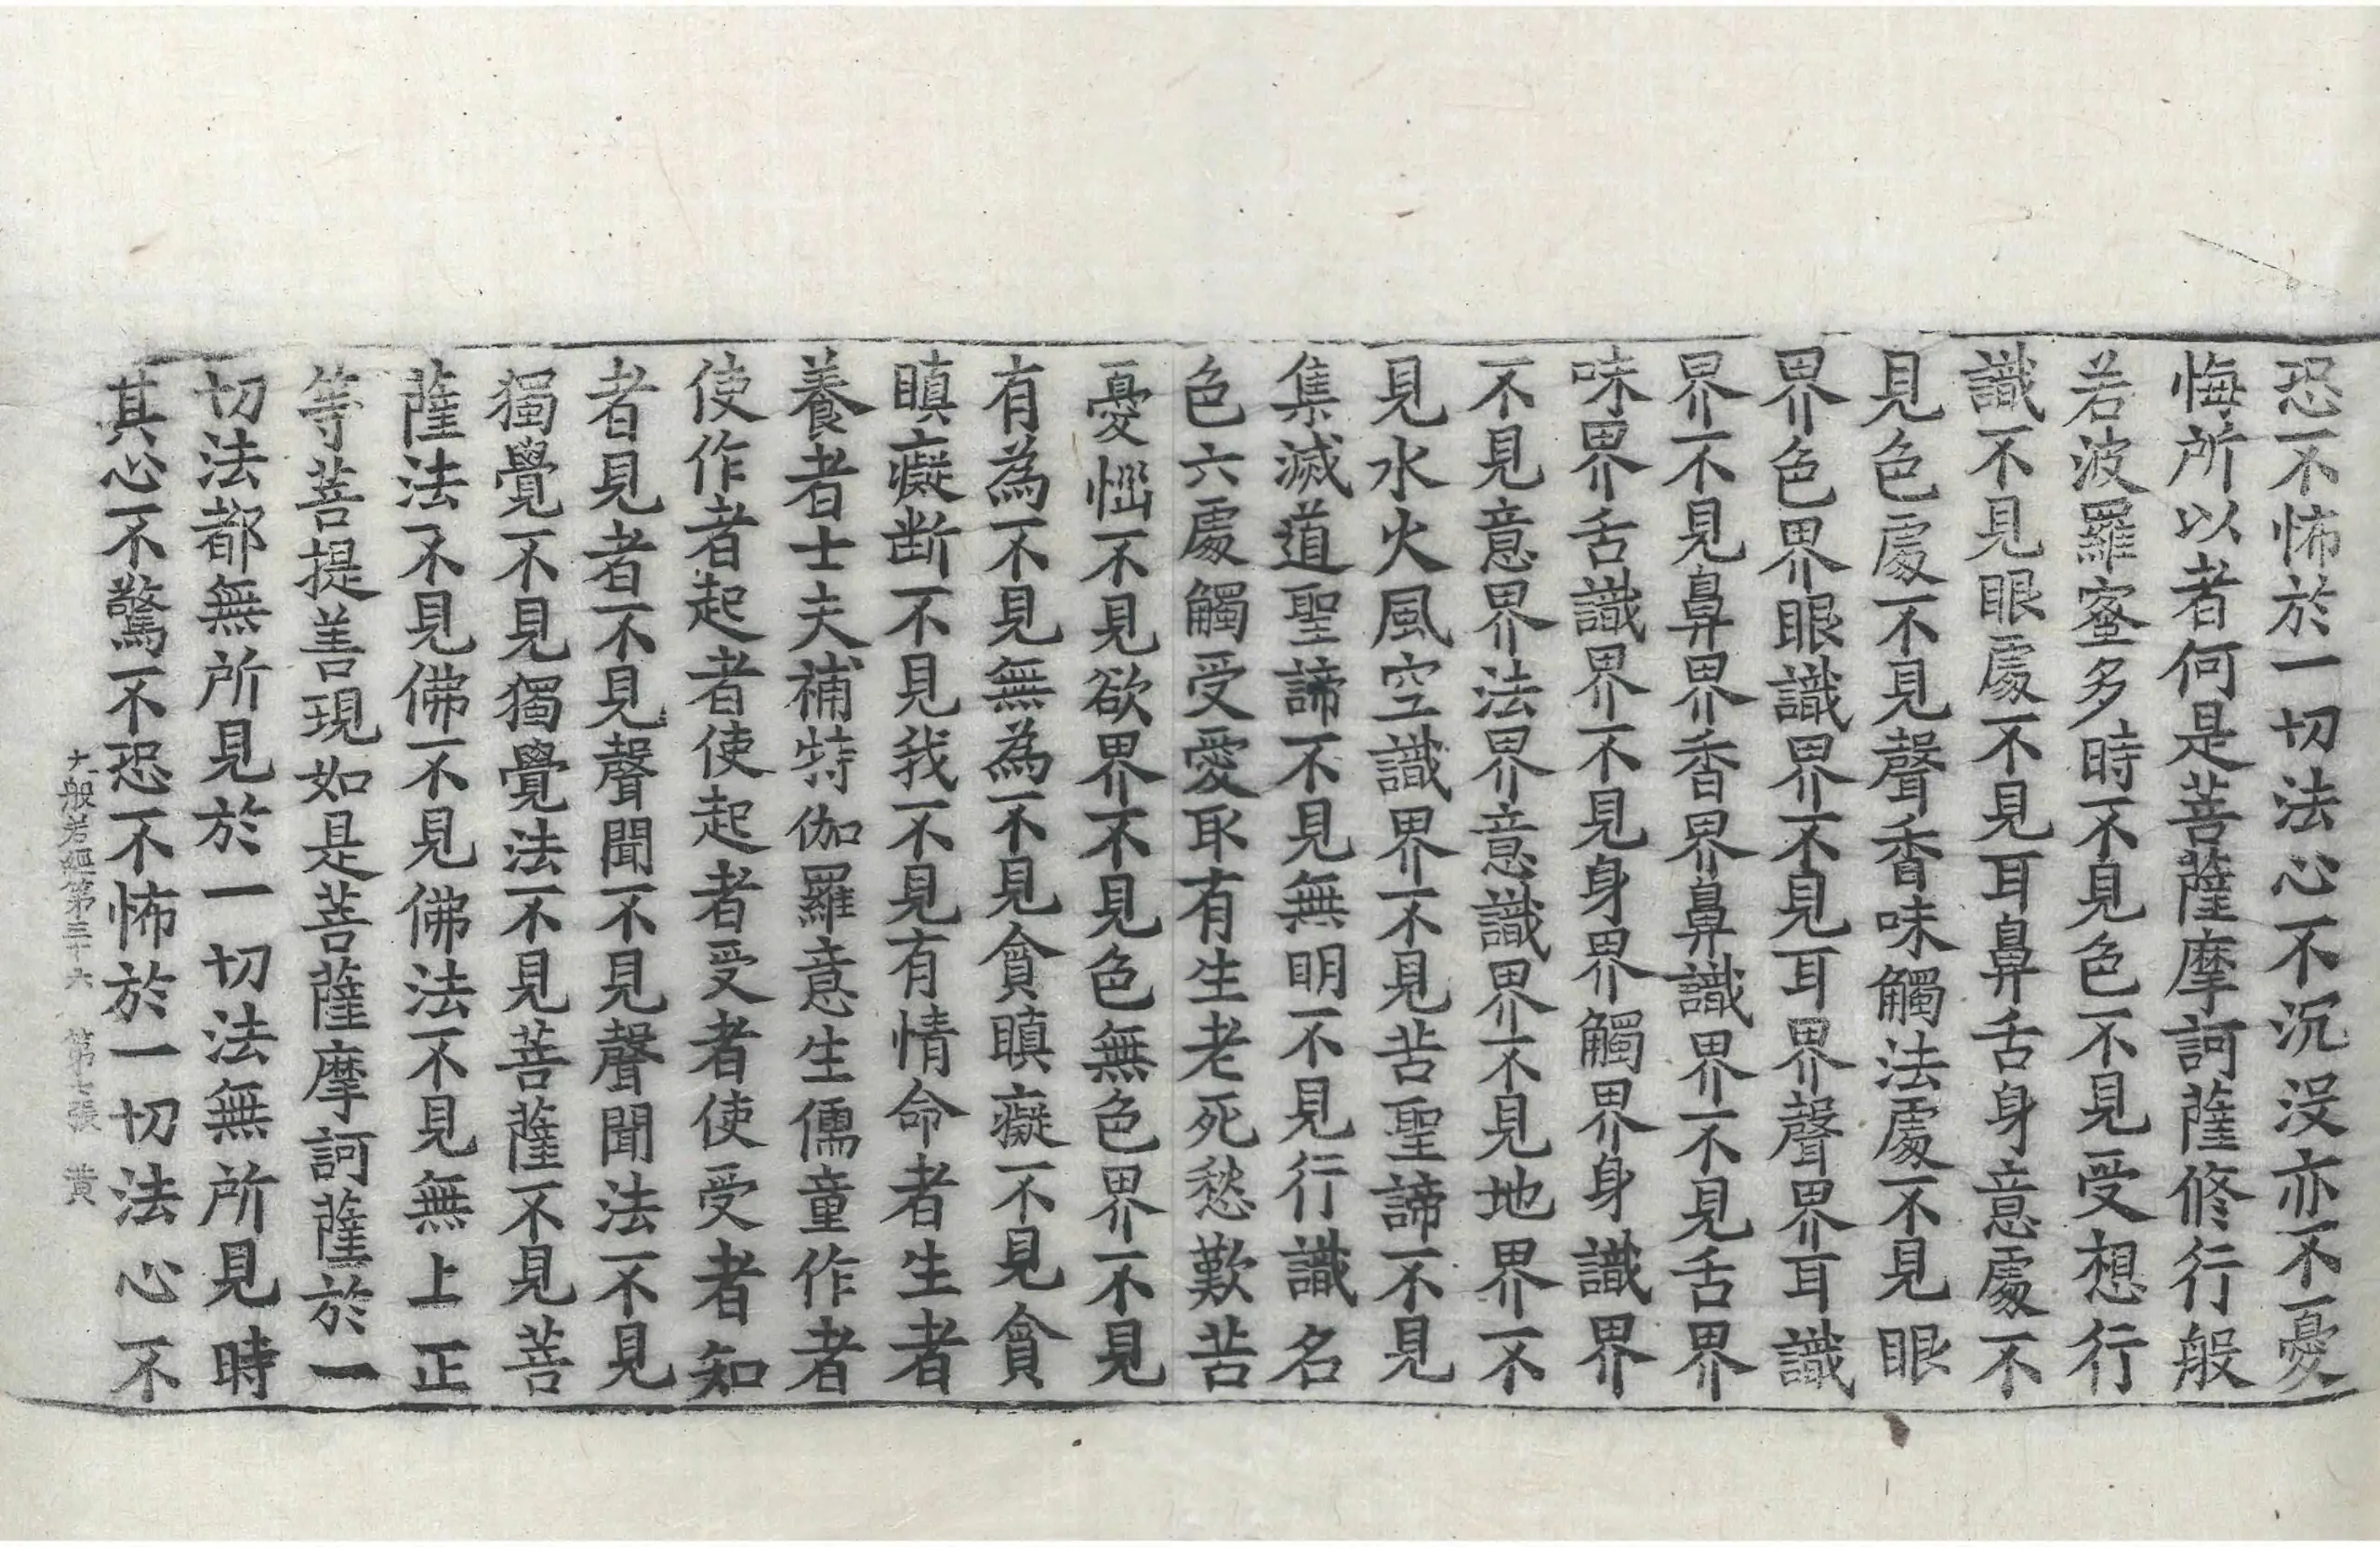 恐不怖於一切法心不沉沒亦不憂
悔所以者何是菩薩摩訶薩修行般
若波羅蜜多時不見色不見受想行
識不見眼處不見耳鼻舌身意處不
見色處不見聲香味觸法處不見眼
界色界眼識界不見耳界聲界耳識
界不見鼻界香界鼻識界不見舌界
味界舌識界不見身界觸界身識界
不見意界法界意識界不見地界不
見水火風空識界不見苦聖諦不見
集滅道聖諦不見無明不見行識名
色六處觸受愛取有生老死愁歎苦
憂惱不見欲界不見色無色界不見
有為不見無為不見貪瞋癡不見貪
瞋癡断不見我不見有情命者生者
養者士夫補特伽羅意生儒童作者
使作者起者使起者受者使受者知
者見者不見聲聞不見聲聞法不見
獨覺不見獨覺法不見菩薩不見菩
薩法不見佛不見佛法不見無上正
等菩提善現如是菩薩摩訶薩於一
切法都無所見於一切法無所見時
其心不驚不恐不怖於一切法心不
大般若經第三十六 第七張 黄